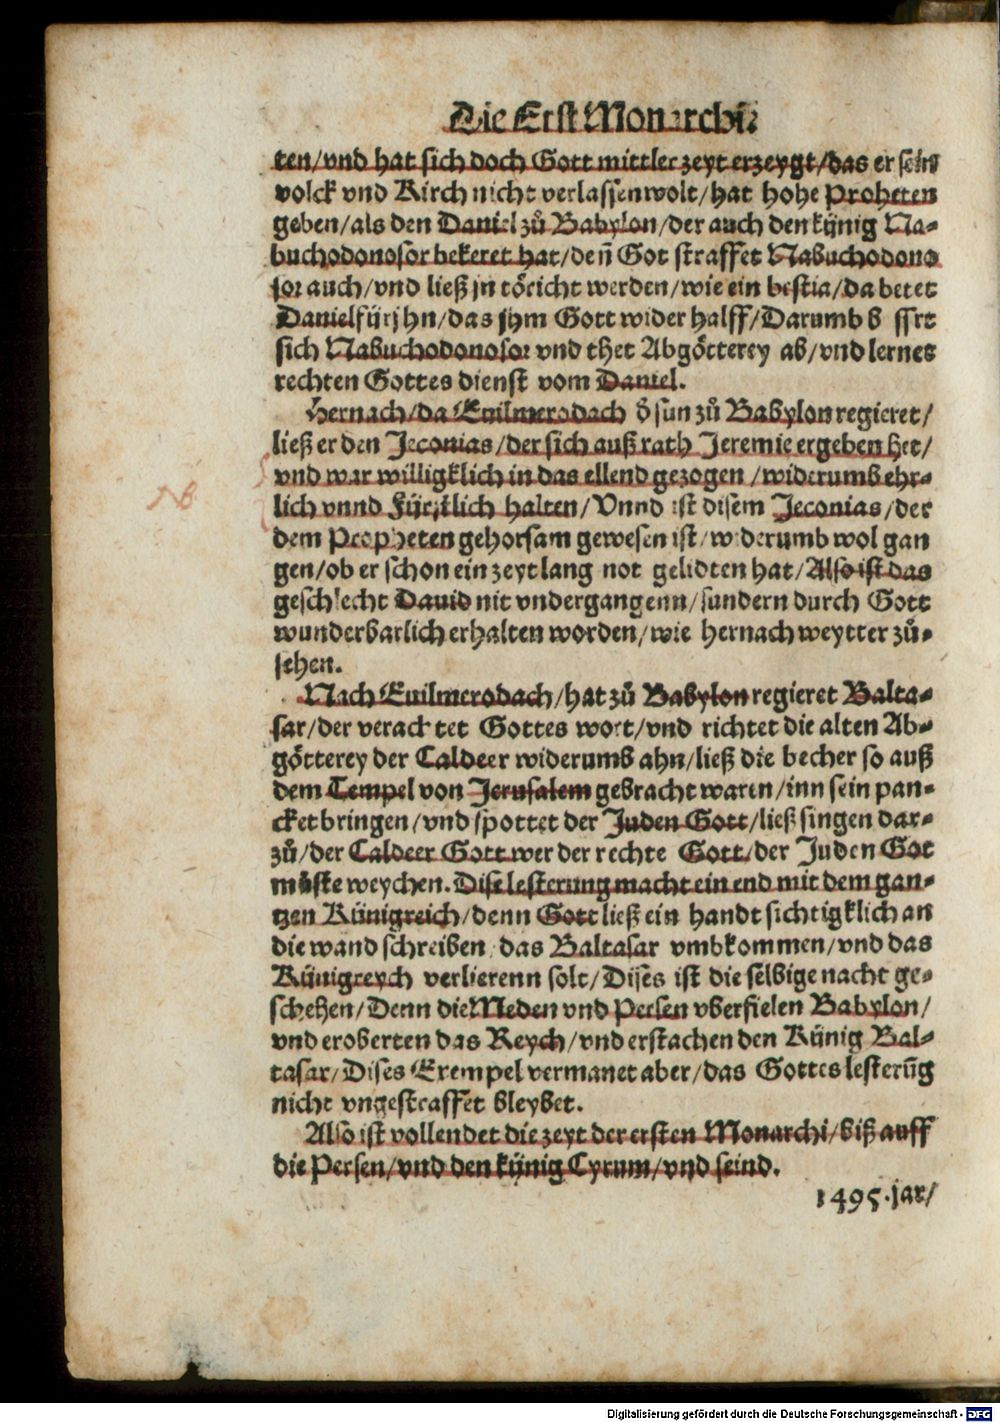 Die Erst Monarchi.
ten/vnd hat sich doch Gott mittler zeyt erzeygt/das er sein
volck vnd Kirch nicht verlassen wolt/hat hohe Proheten
geben/als den Daniel zů Babylon/der auch den künig Na-
buchodonosor bekeret hat/deñ Got straffet Nabuchodono
sor auch/vnd ließ jn töricht werden/wie ein bestia/da betet
Daniel für jhn/das jhm Gott wider halff/Darumb b ssrt
sich Nabuchodonosor vnd thet Abgötterey ab/vnd lernet
rechten Gottes dienst vom Daniel.
Hernach/da Euilmerodach d̕ sun zů Babylon regieret/
ließ er den Jeconias/der sich auß rath Jeremie ergeben het/
vnd war willigklich in das ellend gezogen/widerumb ehr-
lich vnnd Fürstlich halten/Vnnd ist disem Jeconias/der
dem Propheten gehorsam gewesen ist/widerumb wol gan
gen/ob er schon ein zeyt lang not gelidten hat/Also ist das
geschlecht Dauid nit vndergangenn/sundern durch Gott
wunderbarlich erhalten worden/wie hernach weytter zů-
sehen.
Nach Euilmerodach/hat zů Babylon regieret Balta-
sar/der verachtet Gottes wort/vnd richtet die alten Ab-
götterey der Caldeer widerumb ahn/ließ die becher so auß
dem Tempel von Jerusalem gebracht waren/inn sein pan-
cket bringen/vnd spottet der Juden Gott/ließ singen dar-
zů/der Caldeer Gott wer der rechte Gott/der Juden Got
müste weychen. Dise lesterung macht ein end mit dem gan-
tzen Künigreich/denn Gott ließ ein handt sichtigklich an
die wand schreiben/das Baltasar vmbkommen/vnd das
Künigreych verlierenn solt/Dises ist die selbige nacht ge-
schehen/Denn die Meden vnd Persen vberfielen Babylon/
vnd eroberten das Reych/vnd erstachen den Künig Bal-
tasar/Dises Exempel vermanet aber/das Gottes lesterũg
nicht vngestraffet bleybet.
Also ist vollendet die zeyt der ersten Monarchi/biß auff
die Persen/vnd den künig Cyrum/vnd seind.
1495.jar/
NB
Digitalisierung gefördert durch die Deutsche Forschungsgemeinschaft - DFG